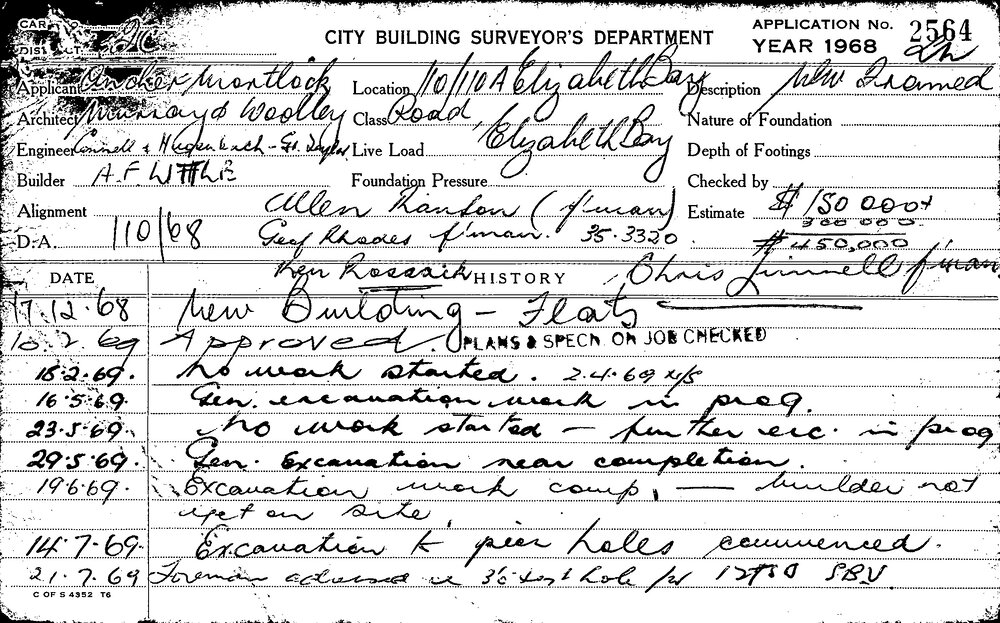 CARD No.
DISTRICT
CITY BUILDING SURVEYOR'S DEPARTMENT
APPLICATION No. 2564
YEAR 1968
Applicant Mortlock Location 10/110A Elizabeth Bay Description New Framed
Architect Murray & Woolley Class Road Nature of Foundation
Engineer Connell & Live Load Elizabeth Bay Depth of Footings
Builder A.F. LITTLE Foundation Pressure Checked by
Alignment Allen Ranson (f'man) Estimate $ 150 000+
300 000
D.A. 110/68 Geof Rhodes f'man. 35.3320 $ 450,000
Ken Chris f'man
DATE HISTORY
17.12.68 New Building - Flats
10.2.69 Approved. PLANS & SPECN. ON JOB CHECKED
18.2.69. No work started. 2.4.69 w/s
16.5.69. Gen. excavation work in prog.
23.5.69. No work started - further exc. in prog
29.5.69. Gen. Excavation near completion.
19.6.69. Excavation work comp, - builder not
yet on site.
14.7.69. Excavation to pier holes commenced.
21.7.69 Foreman advised test hole for
C OF S 4352 T6